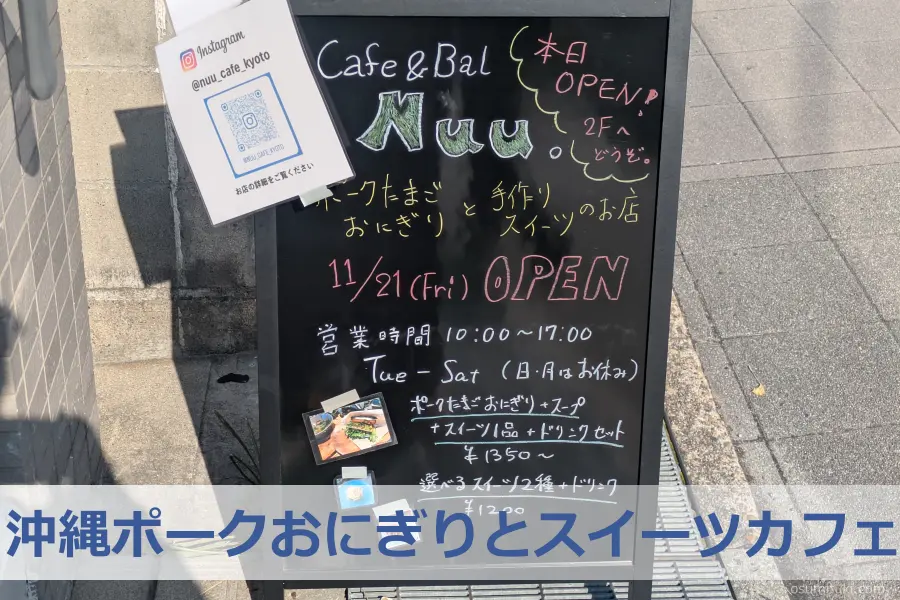 Instagram
@nuu_cafe_kyoto
@NUU_CAFE_KYOTO
お店の詳細をご覧ください
Cafe & Bal
Nuu。
本日
OPEN!
2Fへ
どうぞ。
ポークたまご
おにぎり
と
手作り
スイーツ
のお店
11/21(Fri) OPEN
営業時間 10:00〜17:00
Tue - Sat (日・月はお休み)
ポークたまごおにぎり+スープ
+スイーツ1品+ドリンクセット
¥1350〜
選べるスイーツ2種+ドリンク
¥1200
沖縄ポークおにぎりとスイーツカフェ